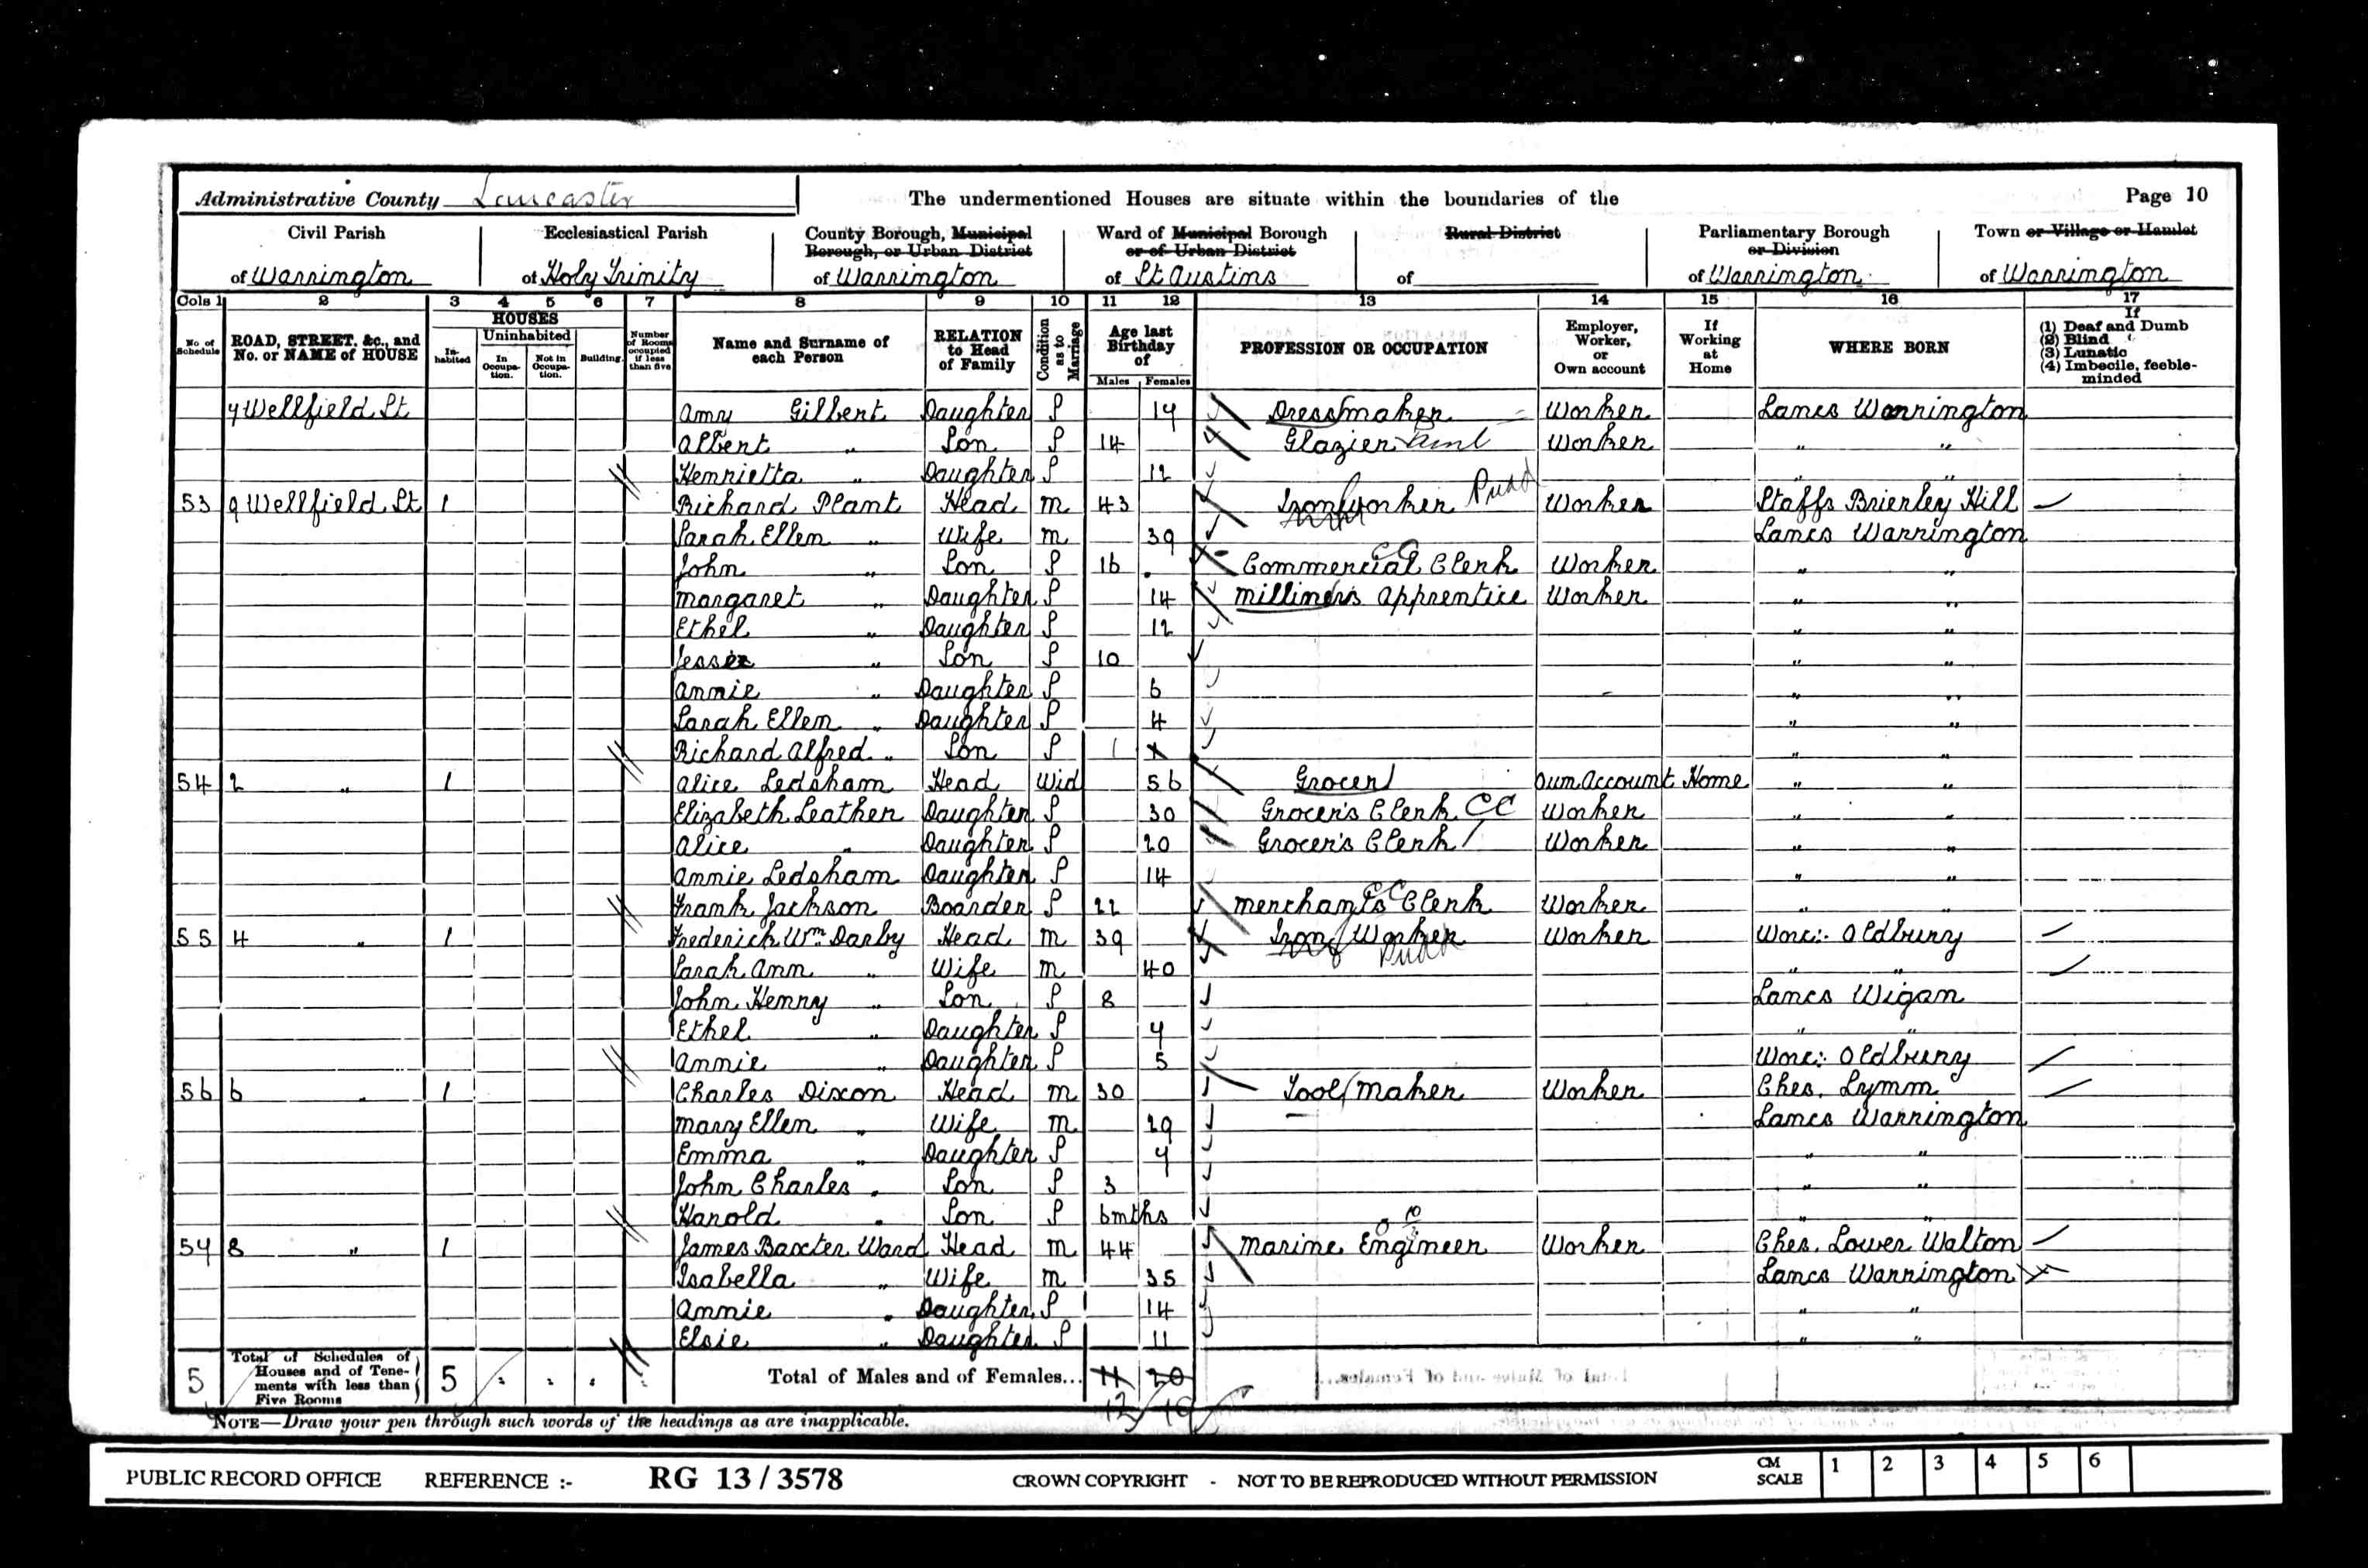 Administrative County Lancaster The undermentioned Houses are situate within the boundaries of the Page 10
Civil Parish Ecclesiastical Parish County Borough, Municipal Borough, or Urban District Ward of Municipal Borough or of Urban District Rural District Parliamentary Borough or Division Town or Village or Hamlet
of Warrington of Holy Trinity of Warrington of St Austins of of Warrington of Warrington
Cols 1 2 3 4 5 6 7 8 9 10 11 12 13 14 15 16 17
No. of Schedule ROAD, STREET, &c., and No. or NAME of HOUSE HOUSES Inhabited Uninhabited In Occupation. Not in Occupation. Building. Number of Rooms occupied if less than five Name and Surname of each Person RELATION to Head of Family Condition as to Marriage Age last Birthday of Males Females PROFESSION OR OCCUPATION Employer, Worker, or Own account If Working at Home WHERE BORN If (1) Deaf and Dumb (2) Blind (3) Lunatic (4) Imbecile, feeble-minded
7 Wellfield St Amy Gilbert Daughter S 17 Dressmaker Worker Lancs Warrington
Albert " Son S 14 Glazier Worker " "
Henrietta " Daughter S 12 " "
53 9 Wellfield St 1 Richard Plant Head M 43 Ironworker Pudd Worker Staffs Brierley Hill
Sarah Ellen " Wife M 39 Lancs Warrington
John " Son S 16 Commercial Clerk Worker " "
Margaret " Daughter S 14 Milliner's Apprentice Worker " "
Ethel " Daughter S 12 " "
Jesse " Son S 10 " "
Annie " Daughter S 6 " "
Sarah Ellen " Daughter S 4 " "
Richard Alfred " Son S 1 " "
54 2 " 1 Alice Ledsham Head Wid 56 Grocer Own Account Home " "
Elizabeth Leather Daughter S 30 Grocer's Clerk CC Worker " "
Alice " Daughter S 20 Grocer's Clerk Worker " "
Annie Ledsham Daughter S 14 " "
Frank Jackson Boarder S 22 Merchant's Clerk CC Worker " "
55 4 " 1 Frederick Wm Darby Head M 39 Iron Worker Pudd Worker Worc: Oldbury
Sarah Ann " Wife M 40 " "
John Henry " Son S 8 Lancs Wigan
Ethel " Daughter S 7 " "
Annie " Daughter S 5 Worc: Oldbury
56 6 " 1 Charles Dixon Head M 30 Tool Maker Worker Ches. Lymm
Mary Ellen " Wife M 29 Lancs Warrington
Emma " Daughter S 7 " "
John Charles " Son S 3 " "
Harold " Son S 6mths " "
57 8 " 1 James Baxter Ward Head M 44 Marine Engineer Worker Ches. Lower Walton
Isabella " Wife M 35 Lancs Warrington
Annie " Daughter S 14 " "
Elsie " Daughter S 11 " "
5 Total of Schedules of Houses and of Tenements with less than Five Rooms 5 Total of Males and of Females... 11 20
12 19
NOTE—Draw your pen through such words of the headings as are inapplicable.
PUBLIC RECORD OFFICE REFERENCE :- RG 13 / 3578 CROWN COPYRIGHT - NOT TO BE REPRODUCED WITHOUT PERMISSION CM SCALE 1 2 3 4 5 6